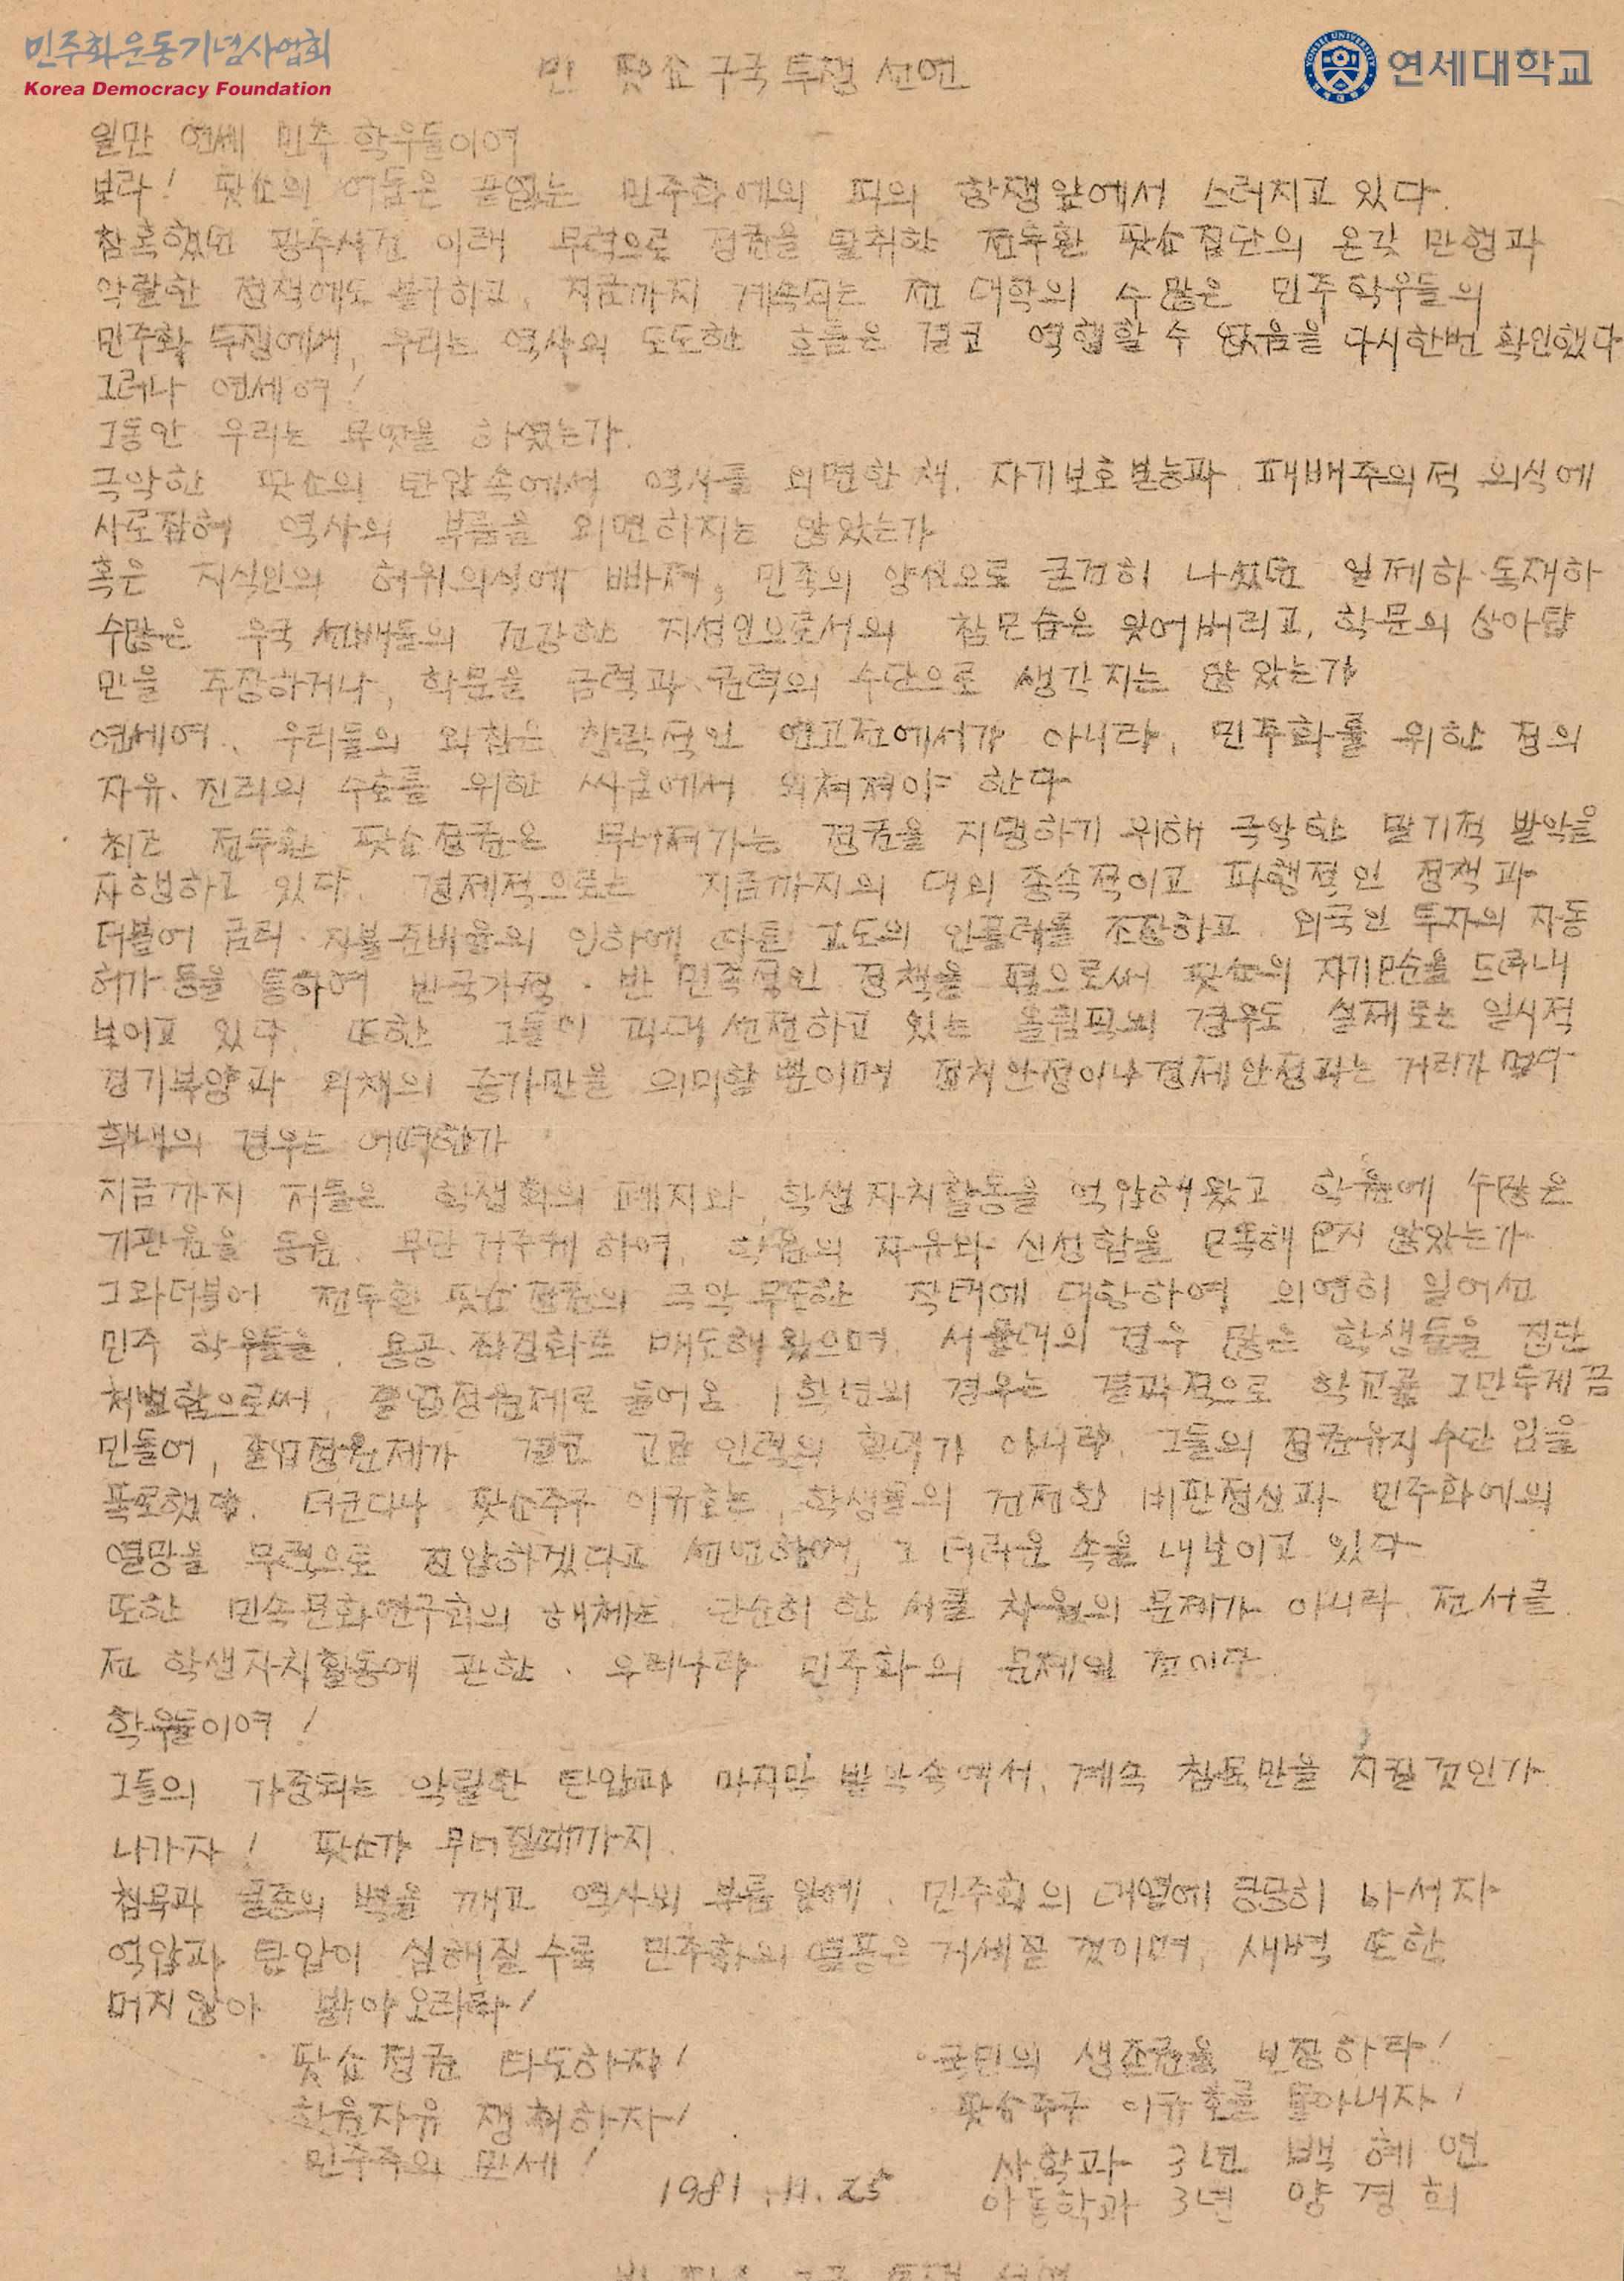 민주화운동기념사업회
Korea Democracy Foundation
연세대학교
반 팟쇼 구국 투쟁 선언
일만 연세 민주 학우들이여
보라! 팟쇼의 어둠은 끝없는 민주화에의 피의 항쟁앞에서 스러지고 있다.
참혹했던 광주사건 이래 무력으로 정권을 탈취한 전두환 팟쇼집단의 온갖 만행과
악랄한 정책에도 불구하고, 지금까지 계속되는 전 대학의 수많은 민주학우들의
민주화 투쟁에서, 우리는 역사의 도도한 흐름은 결코 역행할 수 없음을 다시한번 확인했다
그러나 연세여!
그동안 우리는 무엇을 하였는가.
극악한 팟쇼의 탄압속에서 역사를 외면한 채, 자기보호본능과 패배주의적 의식에
사로잡혀 역사의 부름을 외면하지는 않았는가
혹은 지식인의 허위의식에 빠져, 민족의 양심으로 굳건히 나섰던 일제하·독재하
수많은 우국 선배들의 건강한 지성인으로서의 참모습은 잊어버리고, 학문의 상아탑
만을 주장하거나, 학문을 금력과 권력의 수단으로 생각지는 않았는가
연세여, 우리들의 외침은 향락적인 연고전에서가 아니라, 민주화를 위한 정의
자유, 진리의 수호를 위한 싸움에서 외쳐져야 한다
최근 전두환 팟쇼정권은 무너져가는 정권을 지탱하기 위해 극악한 말기적 발악을
자행하고 있다. 경제적으로는 지금까지의 대외 종속적이고 파행적인 정책과
더불어 금리·지불준비율의 인하에 따른 고도의 인플레를 조장하고 외국인 투자의 자동
허가 등을 통하여 반국가적·반 민족적인 정책을 폄으로써 팟쇼의 자기모순을 드러내
보이고 있다. 또한 그들이 선전하고 있는 올림픽의 경우도, 실제로는 일시적
경기부양과 외채의 증가만을 의미할 뿐이며 정치안정이나 경제안정과는 거리가 멀다
학내의 경우는 어떠한가
지금까지 저들은 학생회의 폐지와 학생자치활동을 억압해왔고 학원에 수많은
기관원을 동원, 무단 거주케 하여, 학원의 자유와 신성함을 모독해 오지 않았는가
그와더불어 전두환 팟쇼정권의 극악무도한 작태에 대항하여 의연히 일어선
민주 학우들을, 용공·좌경화로 매도해 왔으며, 서울대의 경우 많은 학생들을 집단
처벌함으로써, 졸업정원제로 들어온 1학년의 경우는 결과적으로 학교를 그만두게끔
만들어, 졸업정원제가 결코 고급 인력의 확대가 아니라, 그들의 정권유지수단 임을
폭로했다. 더군다나 팟쇼주구 이규호는, 학생들의 건전한 비판정신과 민주화에의
열망을 무력으로 진압하겠다고 선언하여, 그 더러운 속을 내보이고 있다
또한 민속문화연구회의 해체는 단순히 한 서클 차원의 문제가 아니라, 전서클
전 학생자치활동에 관한, 우리나라 민주화의 문제인 것이다.
학우들이여!
그들의 가중되는 악랄한 탄압과 마지막 발악속에서, 계속 침묵만을 지킬 것인가
나가자! 팟쇼가 무너질때까지
침묵과 굴종의 벽을 깨고 역사의 부름 앞에, 민주화의 대열에 당당히 나서자
억압과 탄압이 심해질 수록 민주화의 열풍은 거세질 것이며, 새벽 또한
머지않아 밝아오리라!
팟쇼정권 타도하자!
국민의 생존권을 보장하라!
학원자유 쟁취하자!
팟쇼주구 이규호를 몰아내자!
민주주의 만세!
사학과 3년 백 혜 연
1981. 11. 25
아동학과 3년 양 경 희